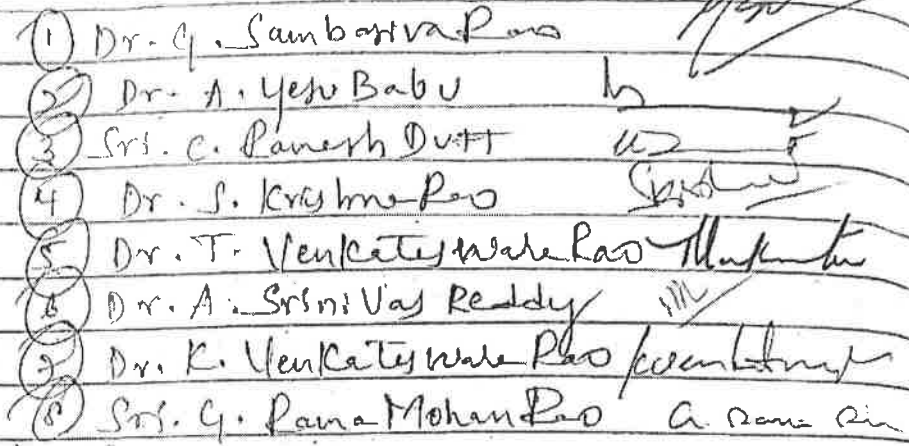 1 Dr. G. SambasivaRao
2 Dr. A. Yesu Babu
3 Sri. C. Ramesh Dutt
4 Dr. S. Krishna Rao
5 Dr. T. Venkateswara Rao
6 Dr. A. Srinivas Reddy
7 Dr. K. Venkateswara Rao
8 Sri. G. Rama Mohan Rao G. Rama